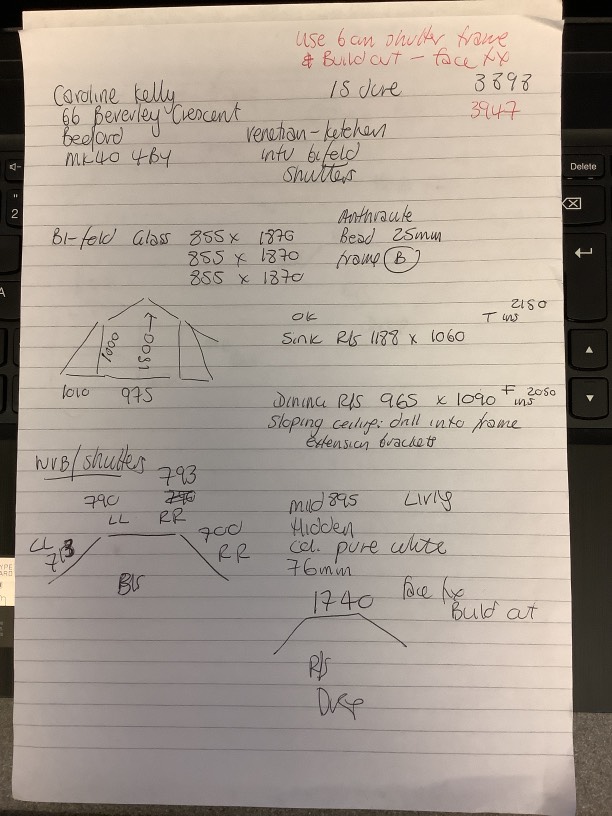 use 6 cm shutter frame
& Build out - face fix
Caroline Kelly
15 June
3898
66 Beverley Crescent
3947
Bedford
venetian - kitchen
MK40 4BY
intu bifold
shutters
Anthracite
Bi-fold Glass 855 x 1870
Bead 25mm
855 x 1870
frame B
855 x 1870
OK
T ins 2150
Sink R/S 1188 x 1060
1000
1300
1010
975
Dining R/S 965 x 1090
F ins 2050
Sloping ceiling: drill into frame
Extension brackets
WVB/shutters
793
790
LL
RR
LL
713
700
RR
B/S
mid 895
Living
Hidden
Col. pure white
76mm
face fix
Build out
1740
R/S